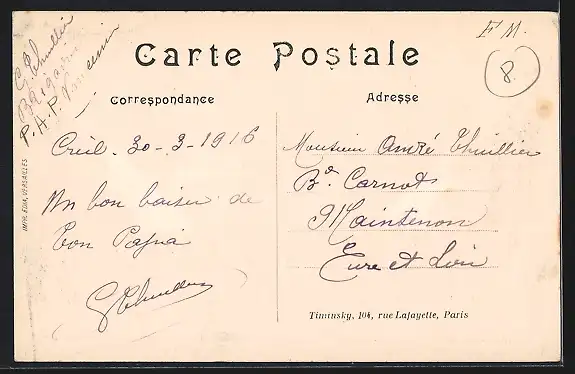 G. Thuillier
P.A.P.
F M.
8
Carte Postale
Correspondance
Adresse
Creil. 30-3-1916
Un bon baiser de
ton Papa
G Thuillier
Monsieur André Thuillier
Bd. Carnot
Maintenon
Eure et Loir
Timinsky, 104, rue Lafayette, Paris
IMPR. EDIA, VERSAILLES